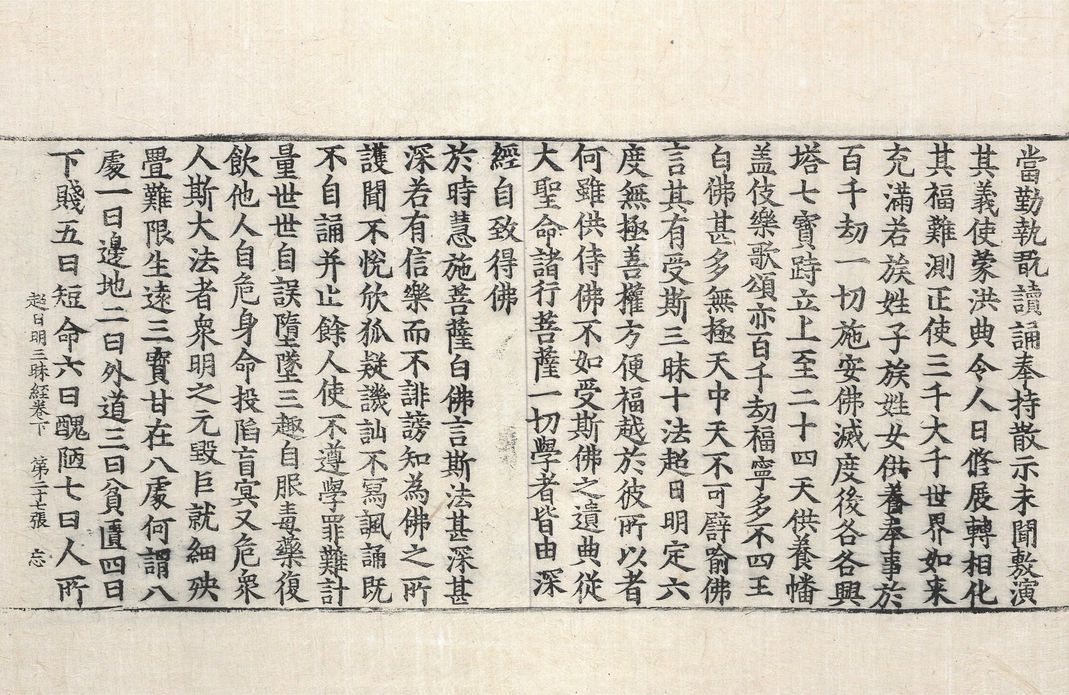 當勤執翫讀誦奉持散示未聞敷演
其義使蒙洪典令人日修展轉相化
其福難測正使三千大千世界如來
充滿若族姓子族姓女供養奉事於
百千劫一切施安佛滅度後各各興
塔七寶跱立上至二十四天供養幡
盖伎樂歌頌亦百千劫福寧多不四王
白佛甚多無極天中天不可譬喻佛
言其有受斯三昧十法超日明定六
度無極善權方便福越於彼所以者
何雖供侍佛不如受斯佛之遺典從
大聖命諸行菩薩一切學者皆由深
經自致得佛
於時慧施菩薩白佛言斯法甚深甚
深若有信樂而不誹謗知為佛之所
護聞不悅欣狐疑譏訕不寫諷誦既
不自誦并止餘人使不遵學罪難計
量世世自誤隋墜三趣自服毒藥復
飲他人自危身命投陷盲冥又危衆
人斯大法者衆明之元毀巨就細殃
疊難限生遠三寶甘在八處何謂八
處一曰邊地二曰外道三曰貧匱四曰
下賤五曰短命六曰醜陋七曰人所
超日明三昧経卷下　第二十七張　忘